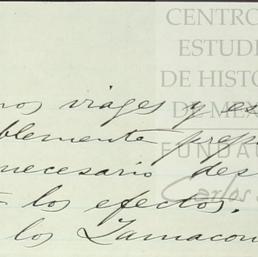 CENTRO
ESTUDI
DE HISTO
DE MÉX
FUNDA
Carlos
nos viages y es
blemente prep
necesario des
los efectos.
los Zamacon